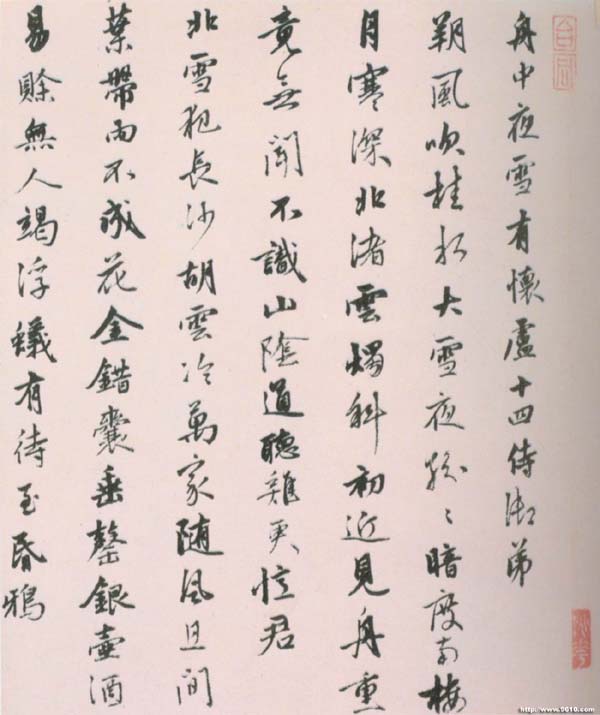 舟中夜雪有懷盧十四侍御弟
朔風吹桂水大雪夜紛〻暗度南梅
月寒深北渚雲燭斜初近見舟重
竟無聞不識山陰道聽雞更憶君
北雪犯長沙胡雲冷萬家随風且間
葉帶雨不成花金錯囊垂罄銀壺酒
易賒無人竭浮蟻有待至昏鴉
http://www.9610.com